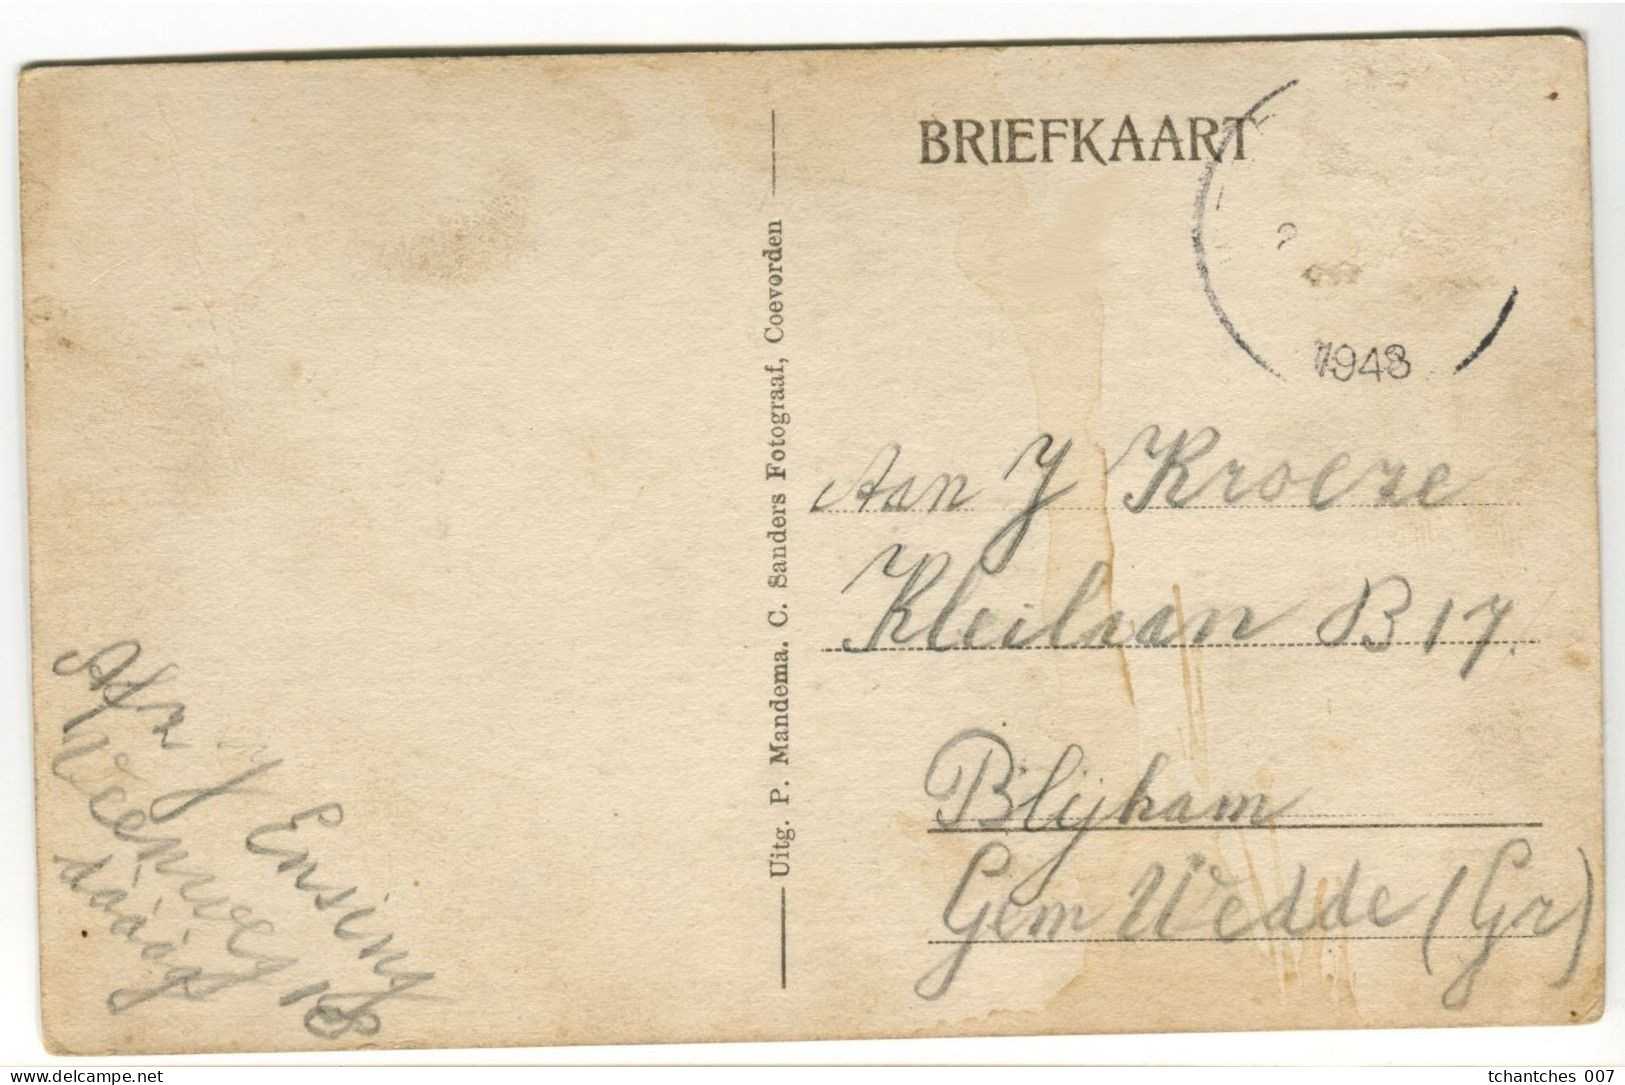 BRIEFKAART
1948
Uitg. P. Mandema. C. Sanders Fotograaf, Coevorden
Aan J Kroeze
Kleilaan B 17.
Blijham
Gem Wedde (Gr)
Afz J Ensing
Veenweg
tchantches 007